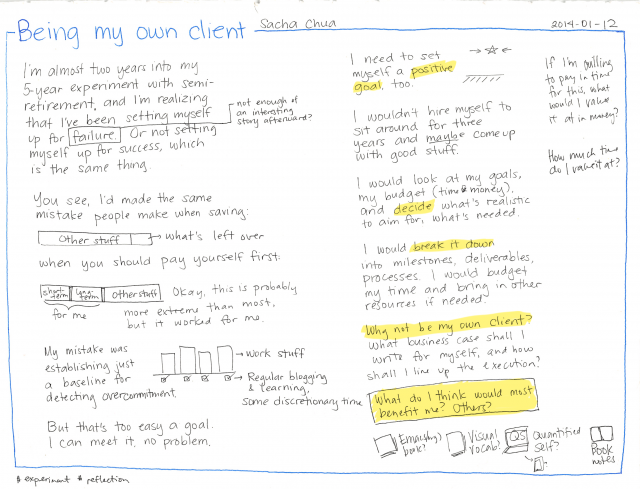 Being my own client
Sacha Chua
2014-01-12
I'm almost two years into my
5-year experiment with semi-
retirement, and I'm realizing
that I've been setting myself
up for failure. Or not setting
myself up for success, which
is the same thing
not enough of
an interesting
story afterward?
You see, I'd made the same
mistake people make when saving:
Other stuff
what's left over
when you should pay yourself first:
short-term
long-term
Other stuff
for me
Okay, this is probably
more extreme than most,
but it worked for me.
My mistake was
establishing just
a baseline for
detecting overcommitment.
Work stuff
Regular blogging
& learning,
some discretionary time
But that's too easy a goal.
I can meet it, no problem.
I need to set
myself a positive
goal, too.
I wouldn't hire myself to
sit around for three
years and maybe come up
with good stuff.
I would look at my goals,
my budget (time & money),
and decide what's realistic
to aim for, what's needed.
I would break it down
into milestones, deliverables,
processes. I would budget
my time and bring in other
resources if needed.
Why not be my own client?
What business case shall I
write for myself, and how
shall I line up the execution?
What do I think would most
benefit me? Others?
If I'm willing
to pay in time
for this, what
would I value
it at in money?
How much time
do I value it at?
Emacs
book?
Visual
vocab?
QS
Quantified
self?
Book
notes
# experiment # reflection